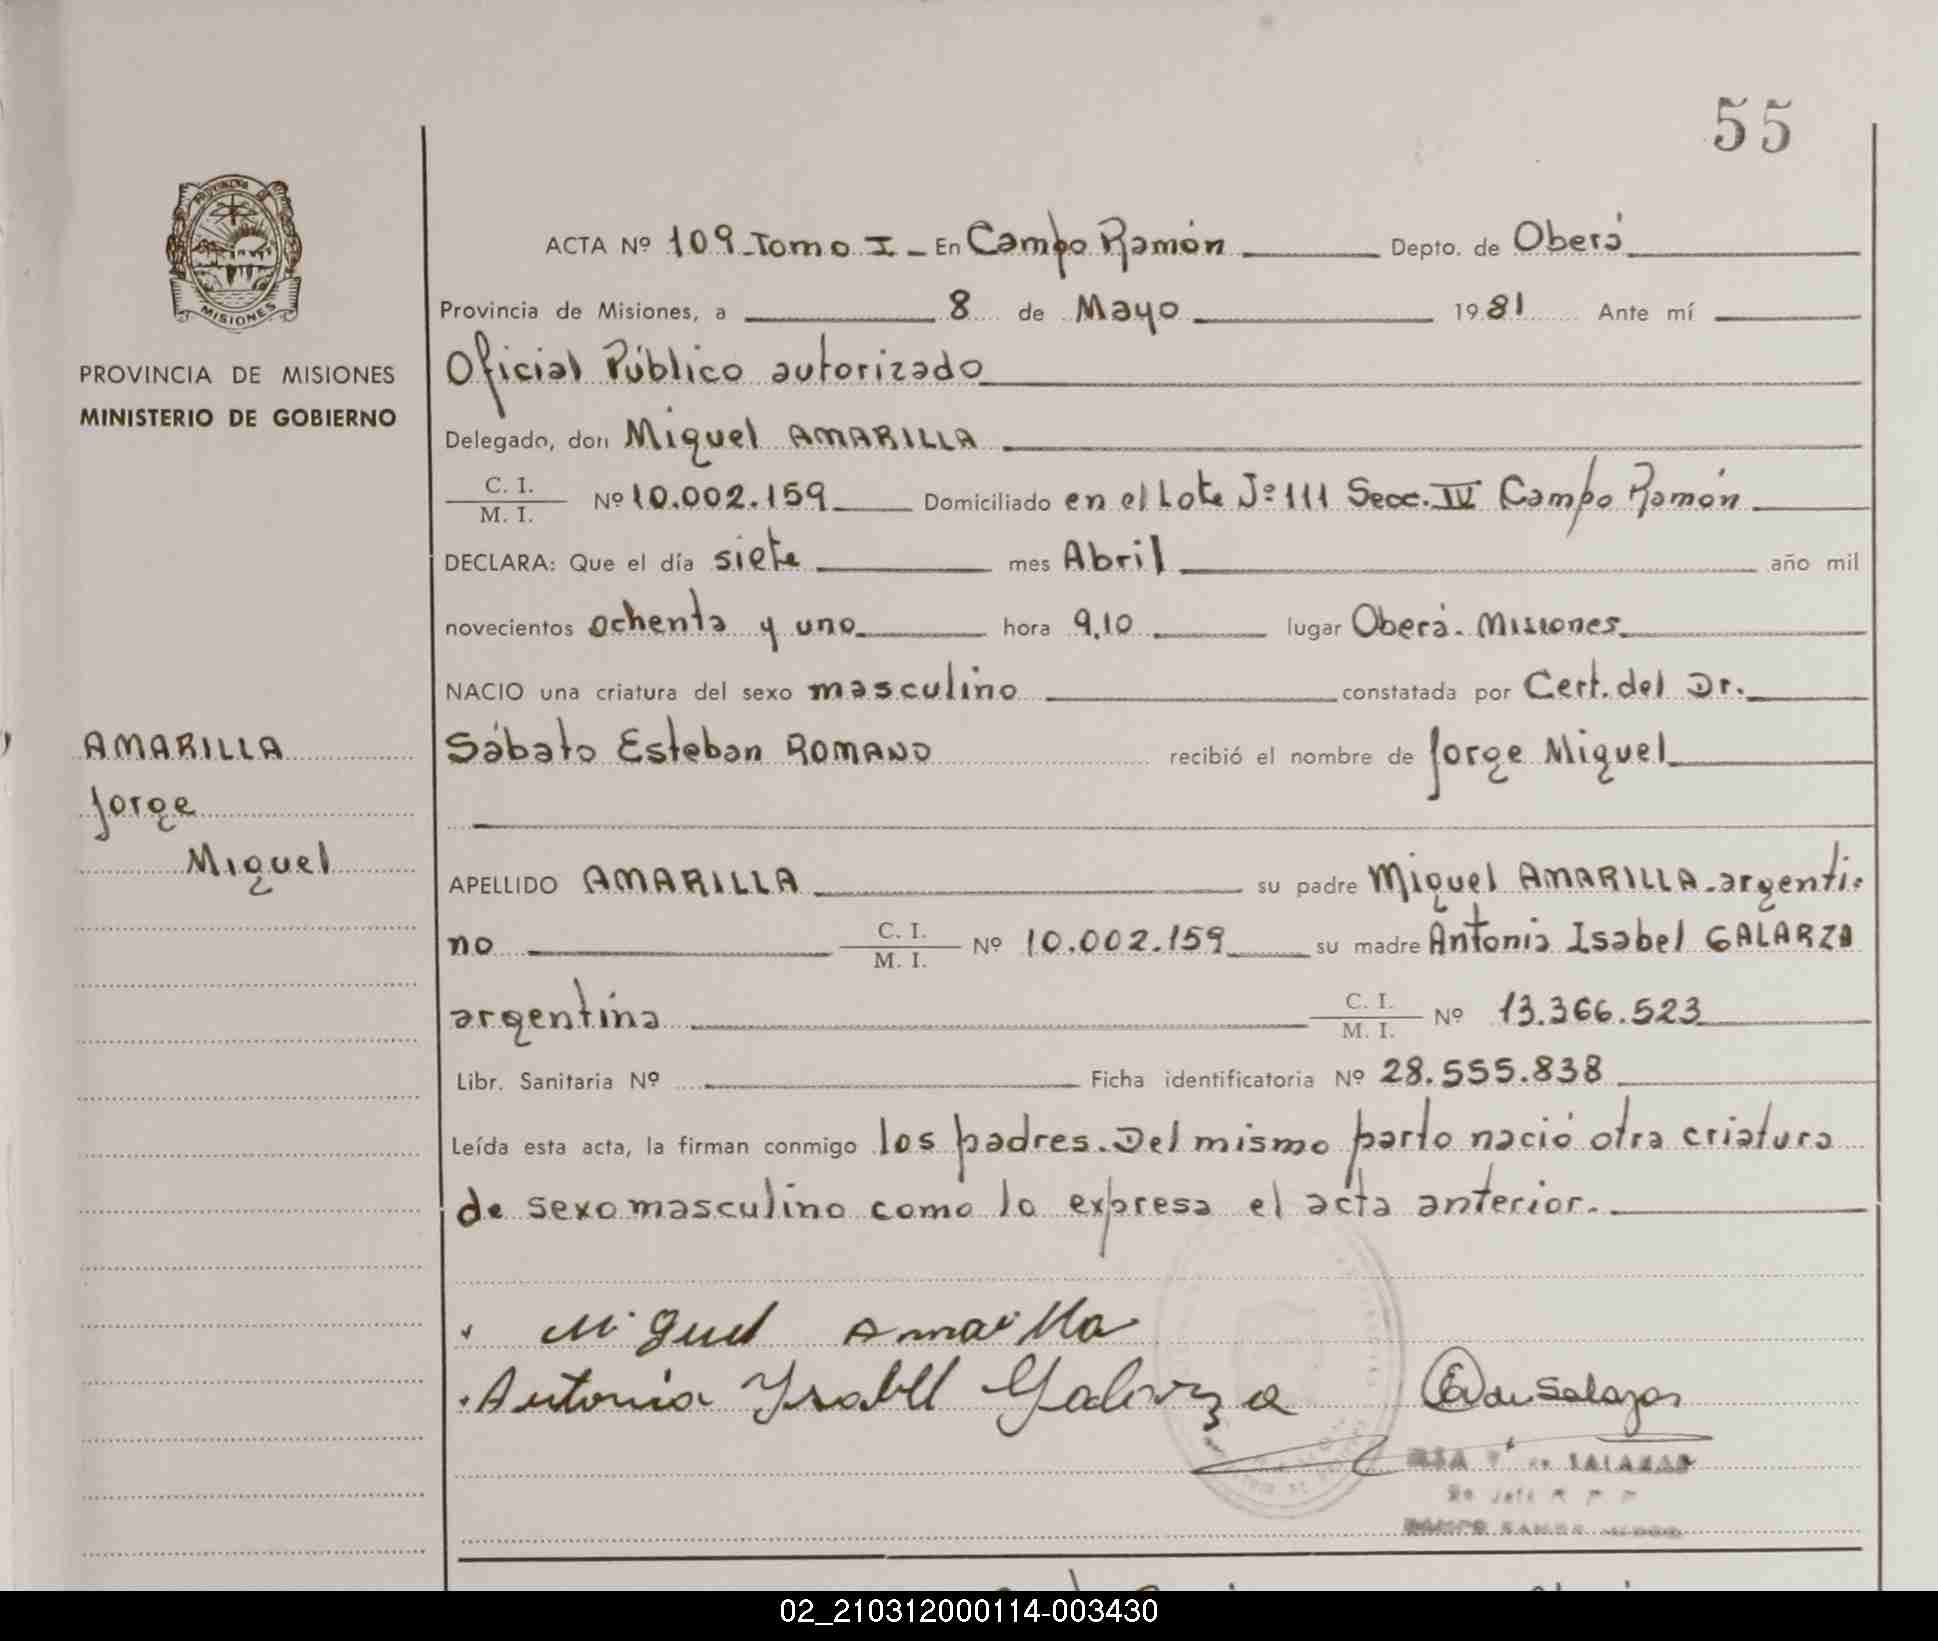 55
ACTA Nº 109 - Tomo I - En Campo Ramón Depto. de Oberá
Provincia de Misiones, a 8 de Mayo 1981 Ante mí
Oficial Público autorizado
PROVINCIA DE MISIONES
MINISTERIO DE GOBIERNO
Delegado, don Miguel AMARILLA
C. I.
M. I. Nº 10.002.159 Domiciliado en el Lote Nº 111 Secc. IV Campo Ramón
DECLARA: Que el día siete mes Abril año mil
novecientos ochenta y uno hora 9,10 lugar Oberá. Misiones
NACIO una criatura del sexo masculino constatada por Cert. del Dr.
AMARILLA
Jorge
Miguel
Sábato Esteban ROMANO recibió el nombre de Jorge Miguel
APELLIDO AMARILLA su padre Miguel AMARILLA - argenti-
no C. I.
M. I. Nº 10.002.159 su madre Antonia Isabel GALARZA
argentina C. I.
M. I. Nº 13.366.523
Libr. Sanitaria Nº Ficha identificatoria Nº 28.555.838
Leída esta acta, la firman conmigo los padres. Del mismo parto nació otra criatura
de sexo masculino como lo expresa el acta anterior.
Miguel Amarilla
Antonia Ysabel Galarza de Salazar
SALAZAR
02_210312000114-003430